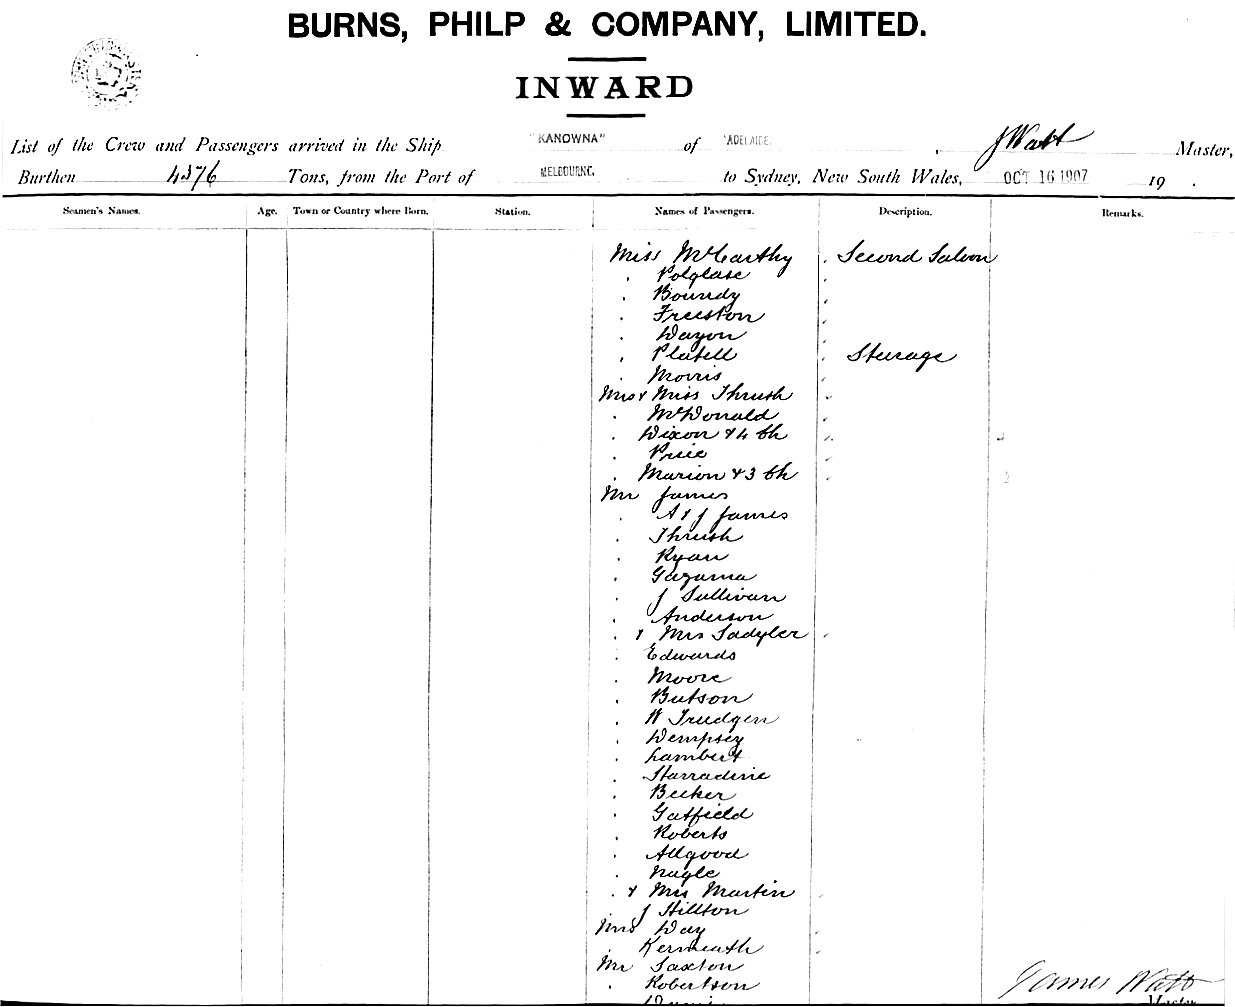 BURNS, PHILP & COMPANY, LIMITED.
INWARD
List of the Crew and Passengers arrived in the Ship "KANOWNA" of ADELAIDE, J Watt Master,
Burthen Tons, from the Port of MELBOURNE. to Sydney, New South Wales, OCT 16 1907 19 .
Seamen's Names. Age. Town or Country where Born. Station. Names of Passengers. Description. Remarks.
Miss McCarthy Second Saloon
" Polglase "
" Boundy "
" Freeston "
" Dayon "
" Platell " Steerage
" Morris "
Mrs & Miss Thrush "
" McDonald "
" Dixon & 4 Ch "
" Price "
" Marion & 3 Ch "
Mr James
" A & J James
" Thrush
" Ryan
" Gazama
" J Sullivan
" Anderson
" & Mrs Sadyler "
" Edwards
" Moore
" Butson
" W Trudgen
" Dempsey
" Lambert
" Starradine
" Becker
" Gatfield
" Roberts
" Allgood
" Nagle
" & Mrs Martin "
" J Hillton
Mrs Day "
" Kermeath "
Mr Saxton
" Robertson James Watt
Master